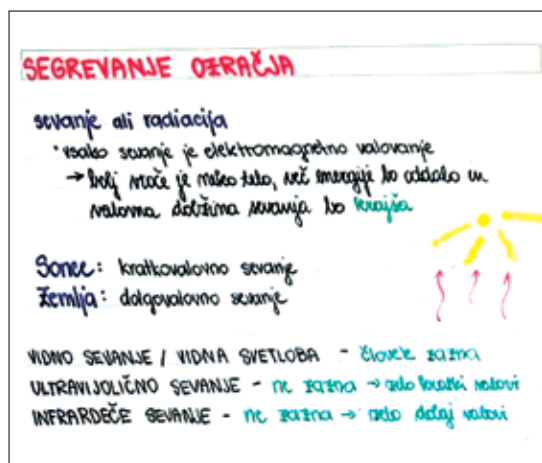 SEGREVANJE OZRAČJA
sevanje ali radiacija
• vsako sevanje je elektromagnetno valovanje
→ bolj vroče je neko telo, več energije bo oddalo in
valovna dolžina sevanja bo krajša
Sonce: kratkovalovno sevanje
Zemlja: dolgovalovno sevanje
VIDNO SEVANJE / VIDNA SVETLOBA - človek zazna
ULTRAVIJOLIČNO SEVANJE - ne zazna → zelo kratki valovi
INFRARDEČE SEVANJE - ne zazna → zelo dolgi valovi